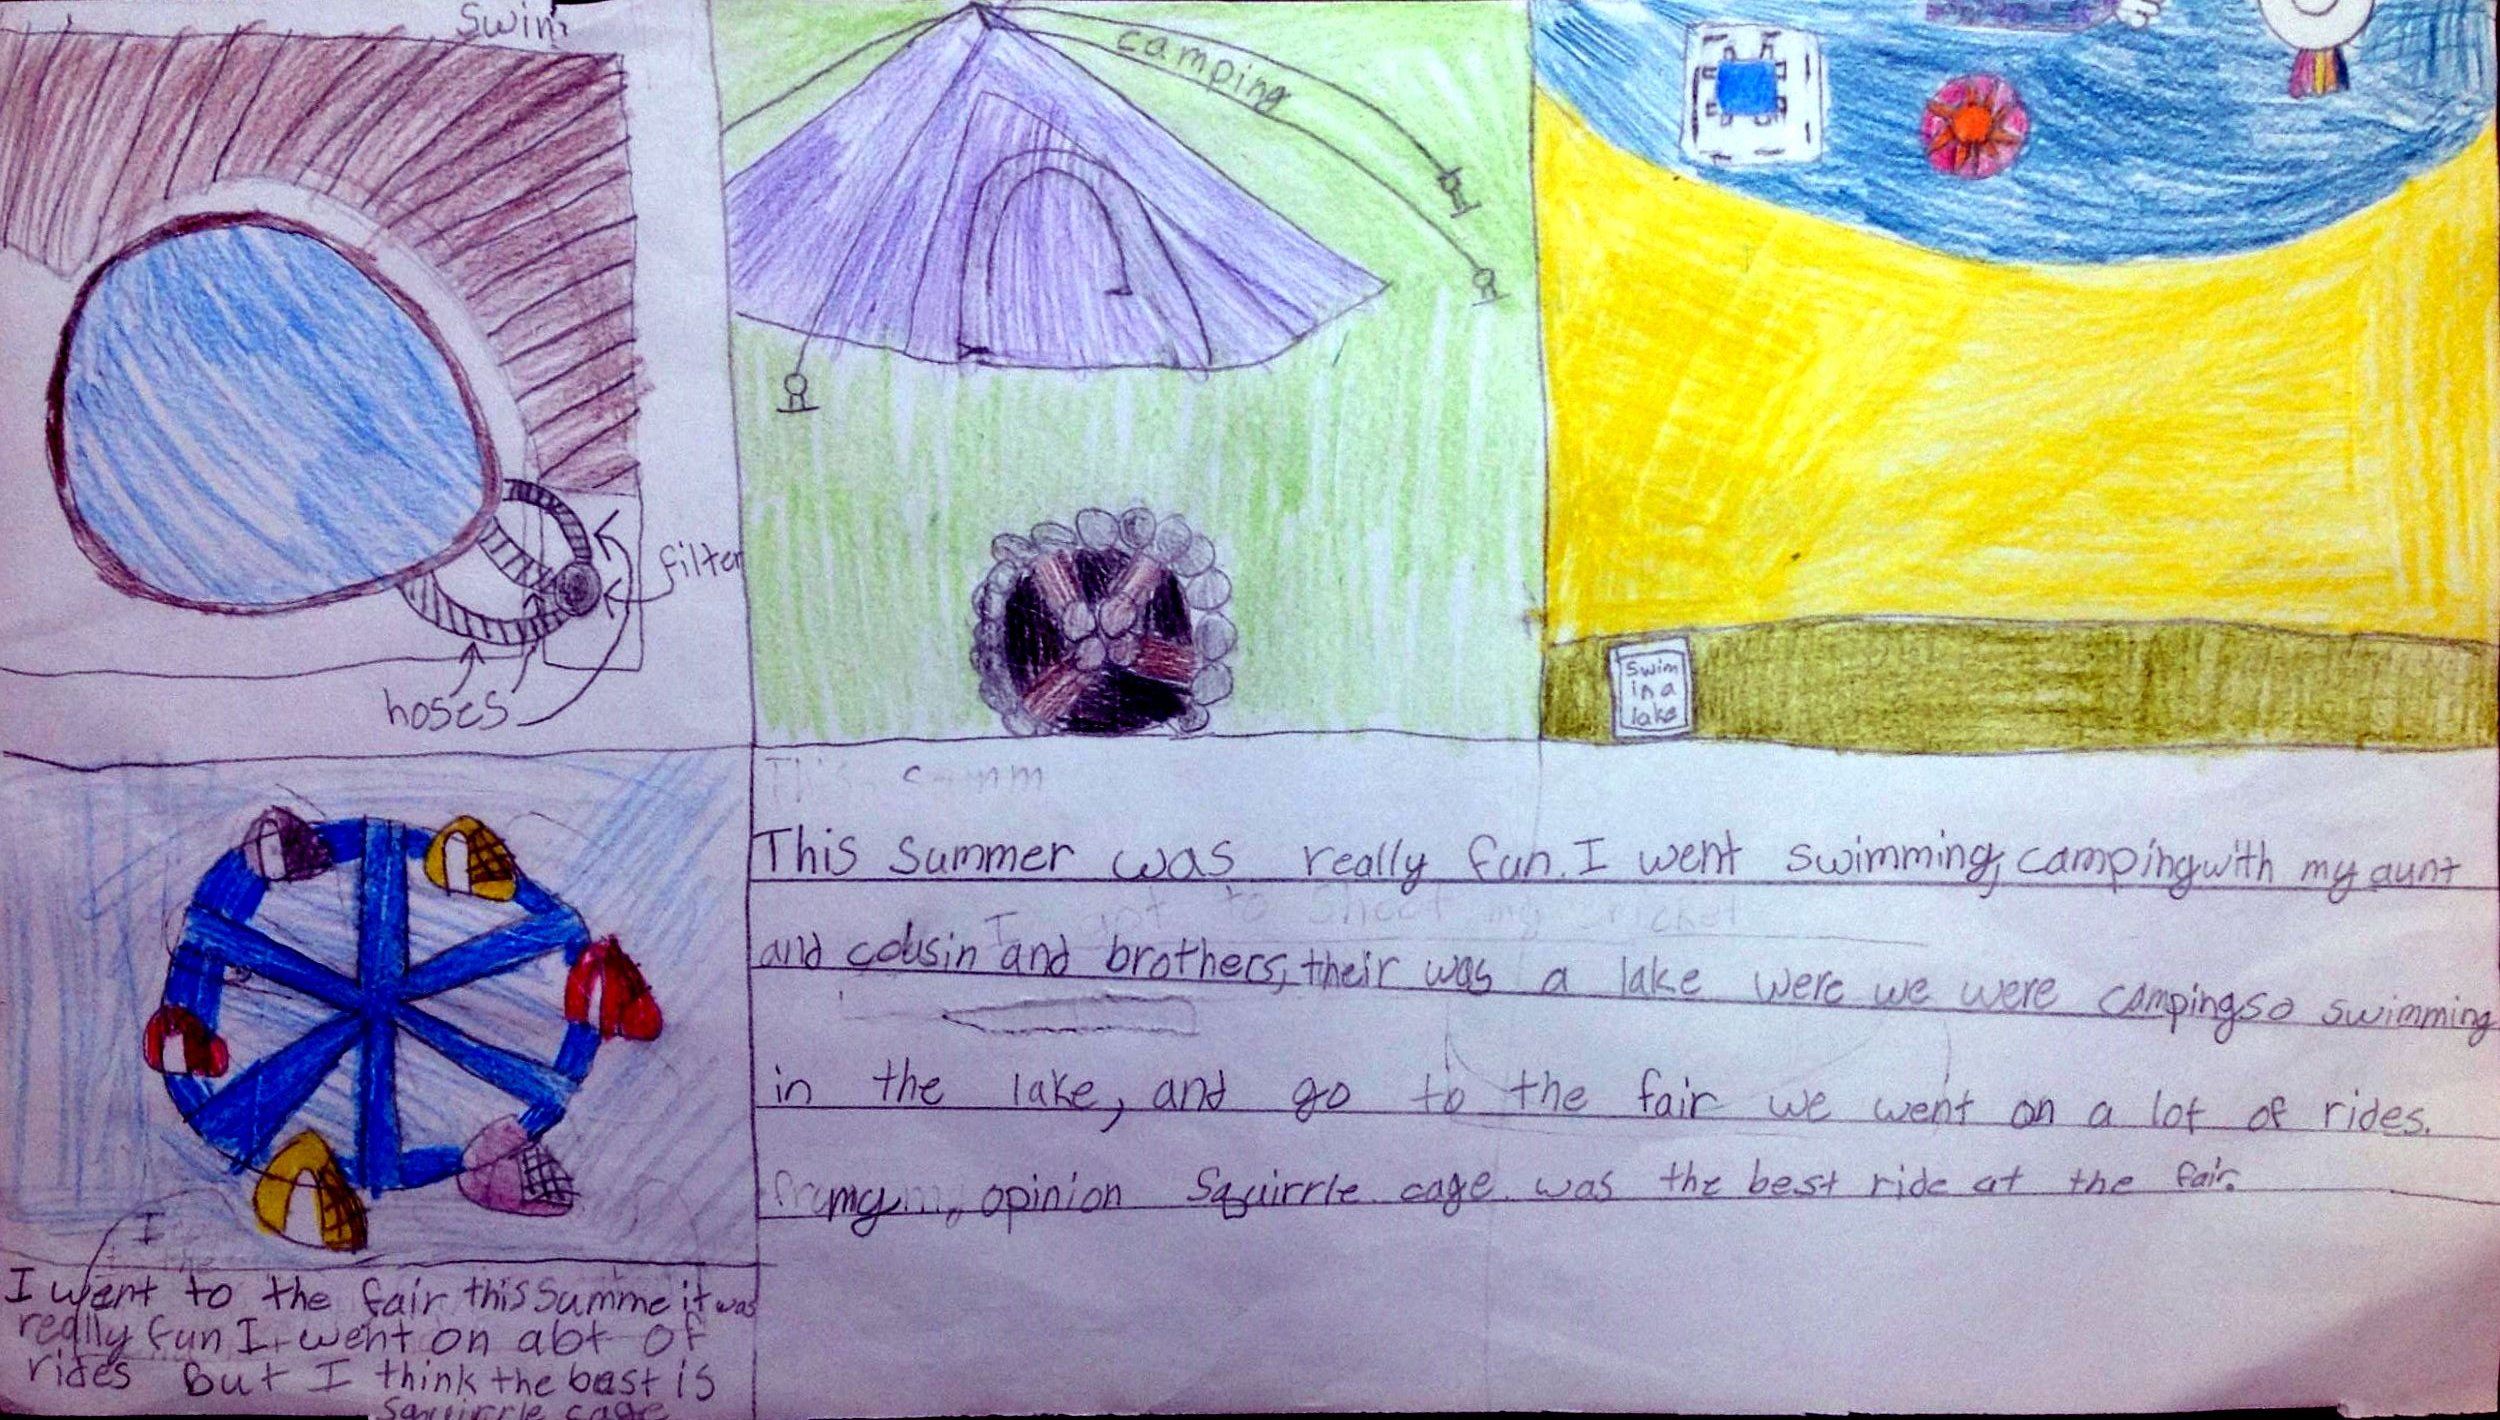 Swim
camping
filter
hoses
Swim
in a
lake
This summer was really fun. I went swimming, camping with my aunt
and cousin and brothers, their was a lake were we were camping so swimming
in the lake, and go to the fair we went on a lot of rides.
my opinion Squirrle cage was the best ride at the fair.
I went to the fair this Summe it was
really fun I went on abt of
rides But I think the best is
Squirrle cage